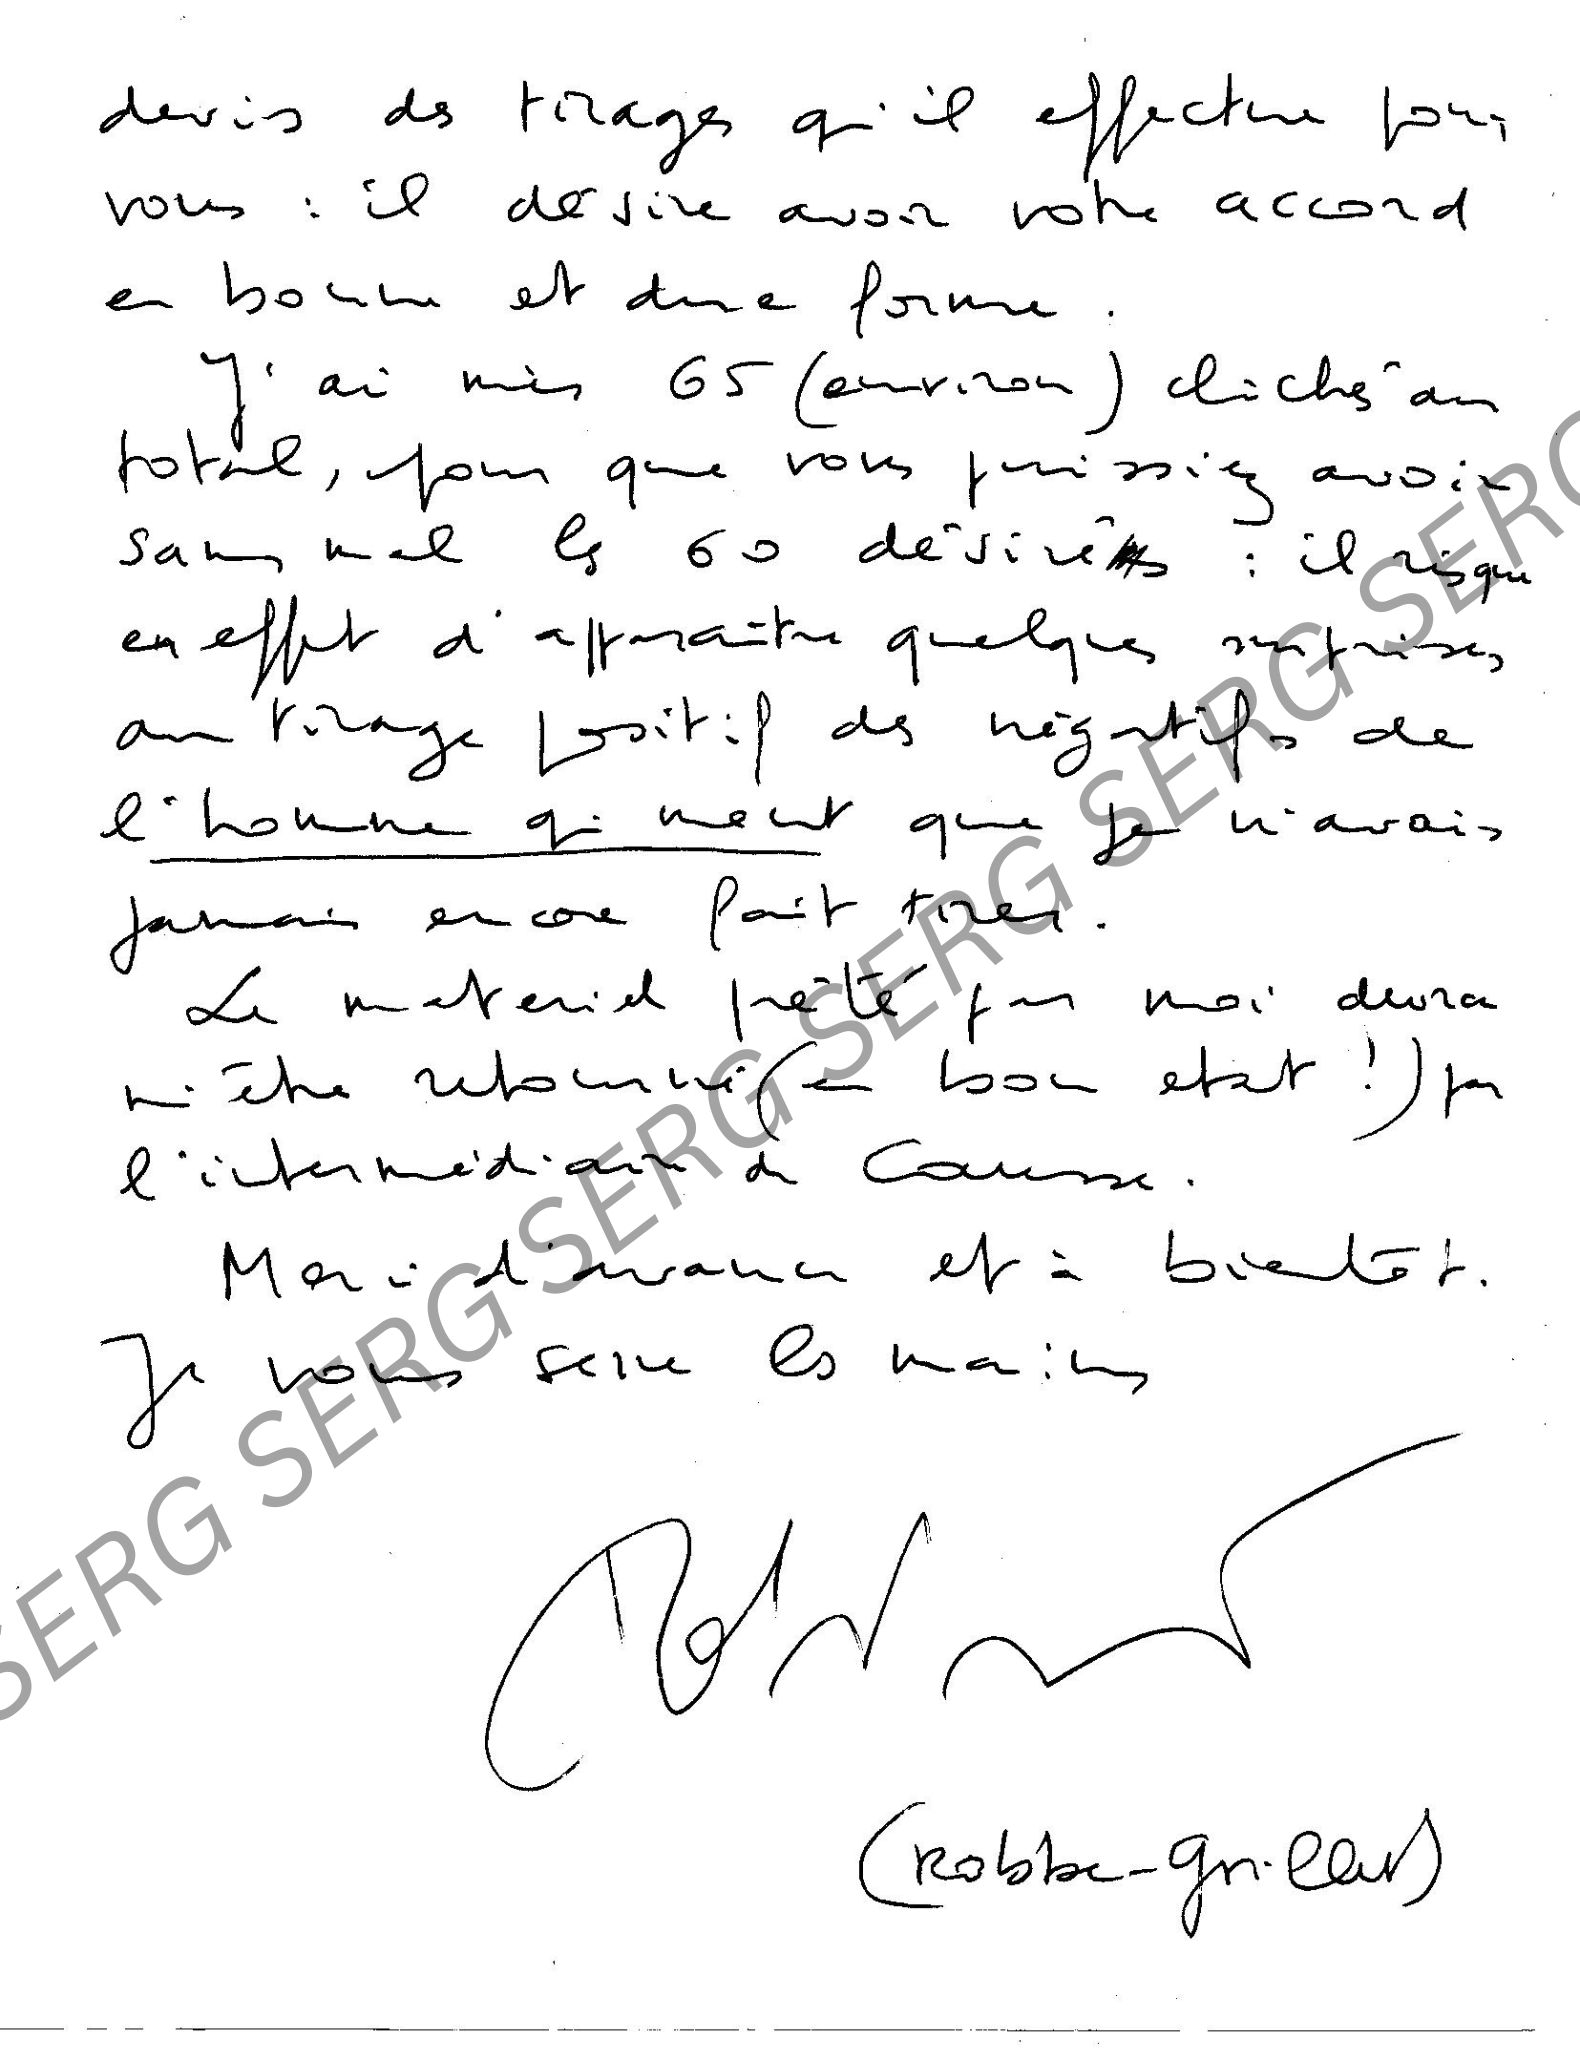 devis des tirages qu'il effectue pour
vous : il désire avoir votre accord
en bonne et due forme.
J'ai mis 65 (environ) clichés au
total, pour que vous puissiez avoir
sans mal les 60 désirés : il risque
en effet d'apparaître quelques surprises
au tirage positif des négatifs de
l'homme qui ment que je n'avais
jamais encore fait tirer.
Le matériel prêté par moi devra
m'être retourné (en bon etat !) par
l'intermédiaire de Causse.
Merci d'avance et à bientôt.
Je vous serre les mains
(Robbe-Grillet)
SERG SERG SERG SERG SERG SERG SERG